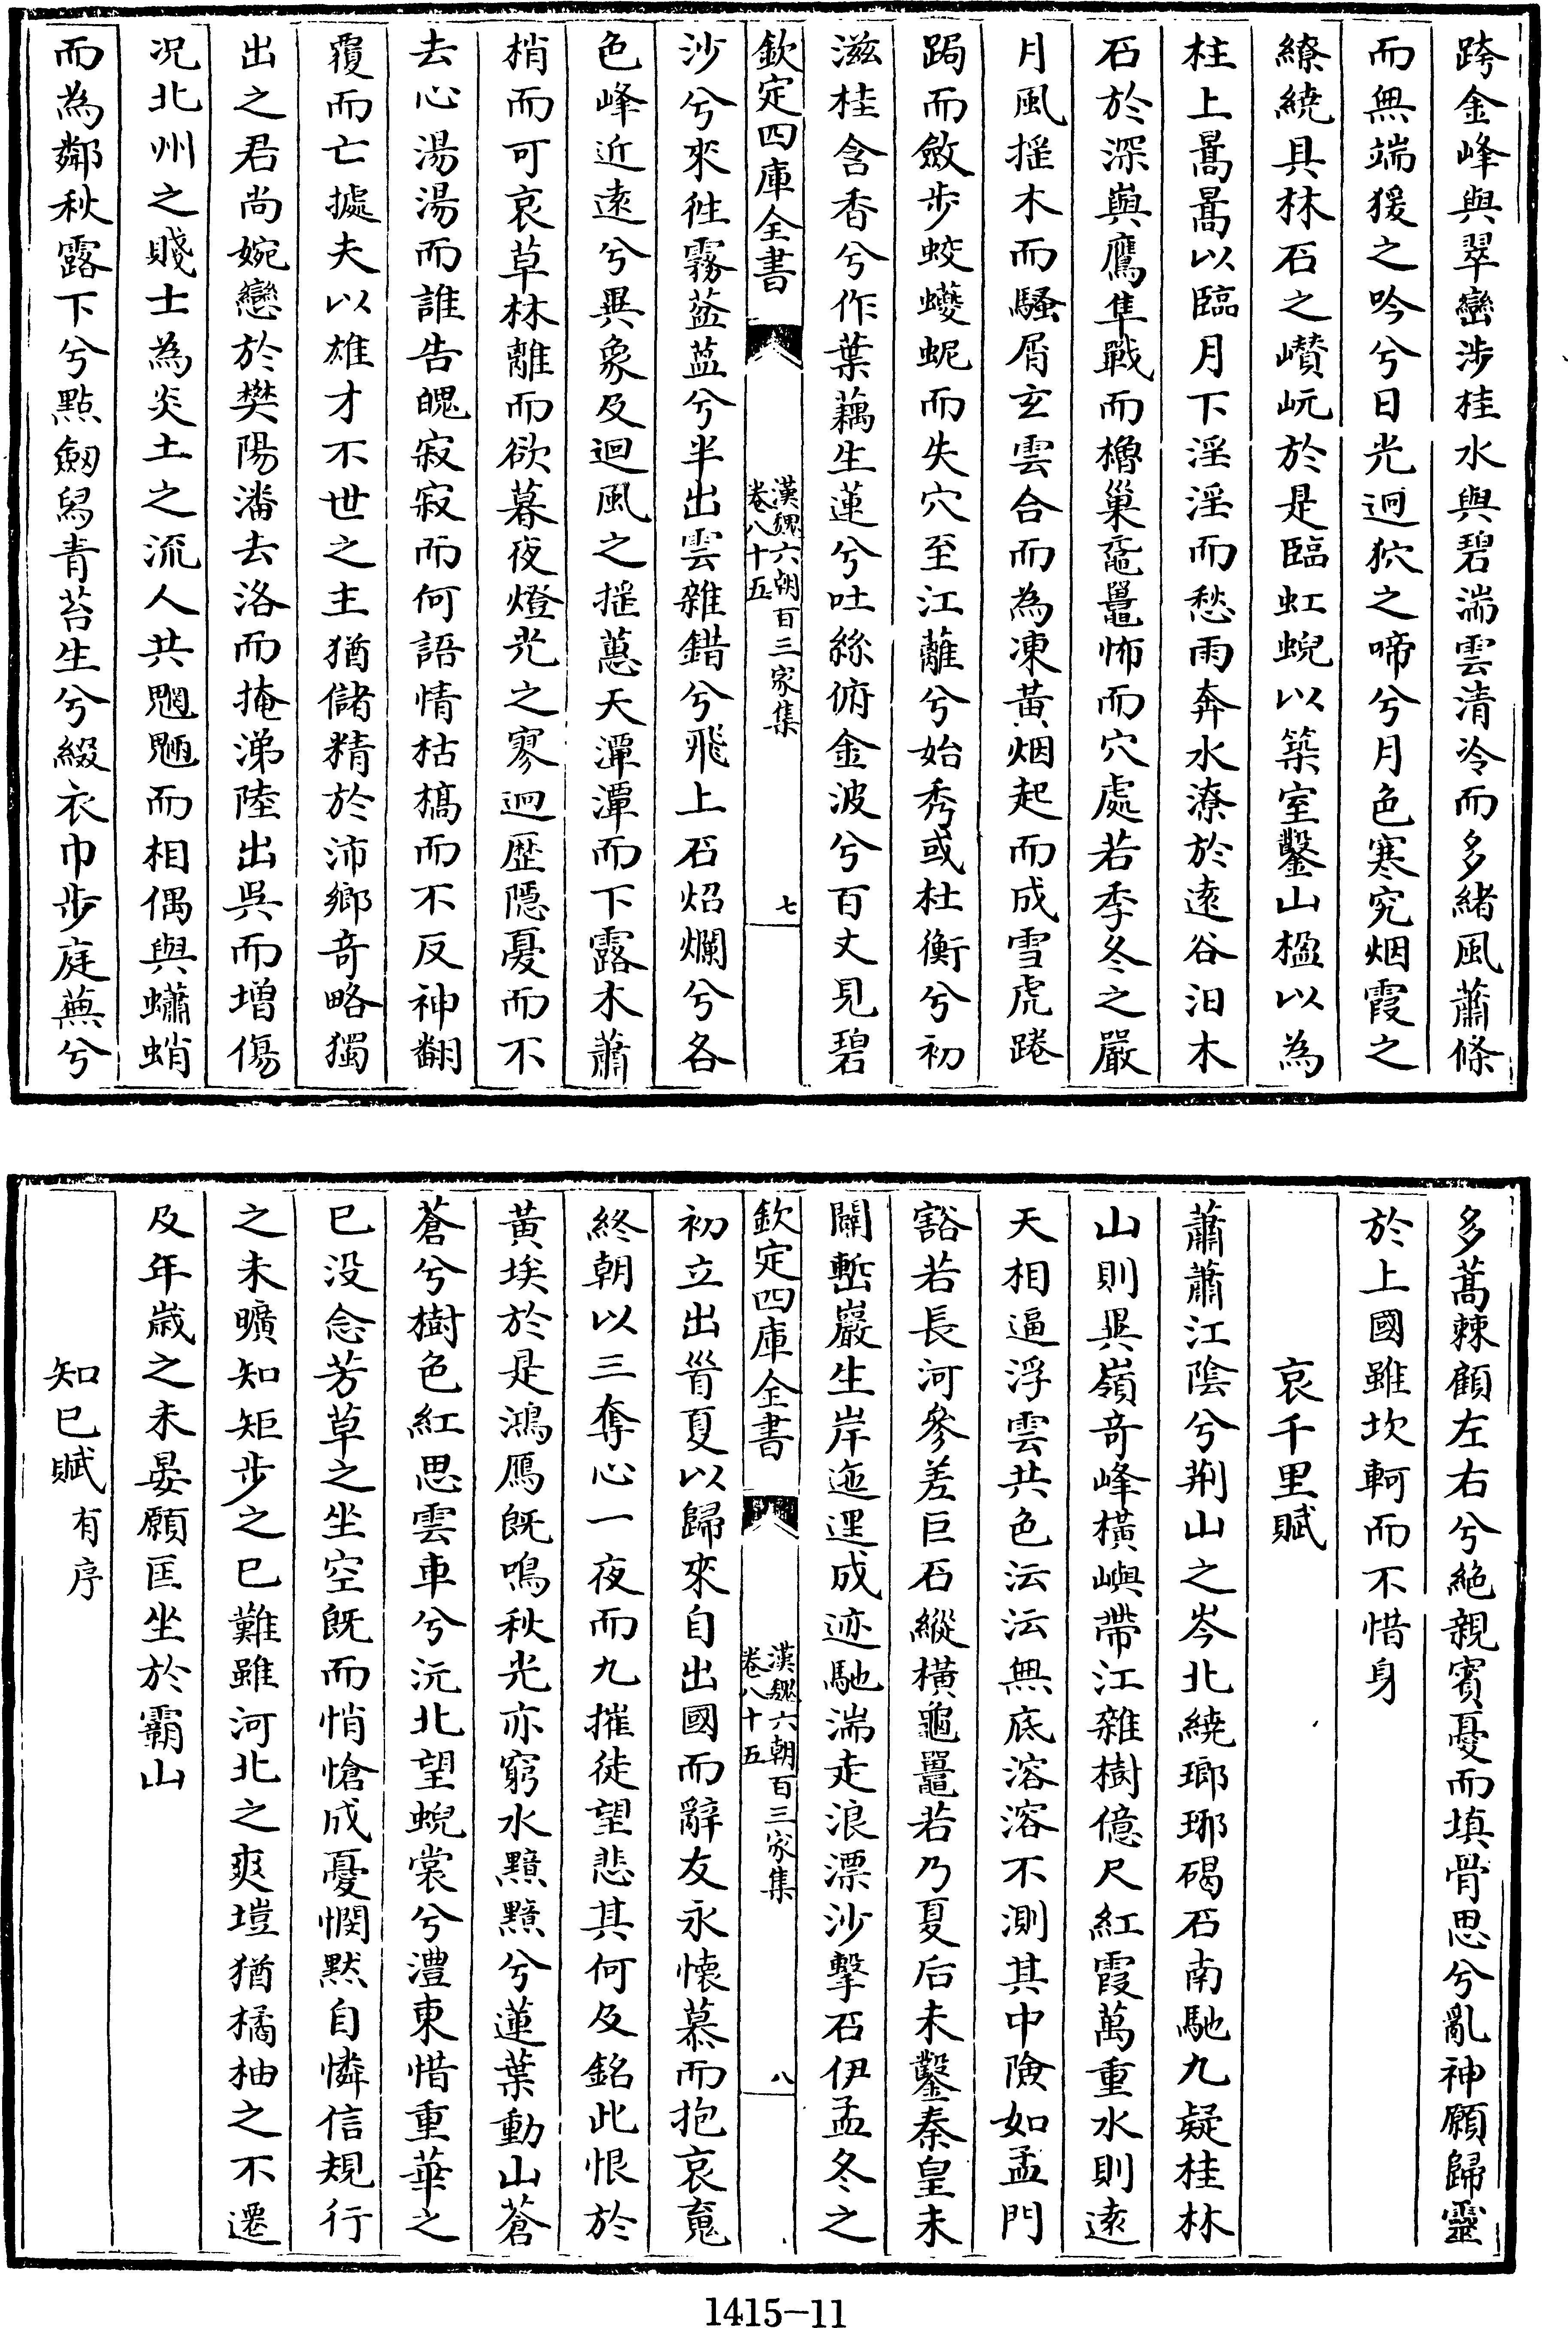 跨金峰與翠巒涉桂水與碧湍雲清泠而多緒風蕭條
而無端猨之吟兮日光迥狖之啼兮月色寒究烟霞之
繚繞具林石之巑岏於是臨虹蜺以築室鑿山楹以為
柱上暠暠以臨月下淫淫而愁雨奔水潦於遠谷汩木
石於深嶼鷹隼戰而櫓巢黿鼉怖而穴處若季冬之嚴
月風摇木而騷屑玄雲合而為凍黃烟起而成雪虎踡
跼而斂步蛟蠼蚭而失穴至江蘺兮始秀或杜衡兮初
滋桂含香兮作葉藕生蓮兮吐絲俯金波兮百丈見碧
欽定四庫全書 漢魏六朝百三家集 卷八十五 七
沙兮來徃霧菴䓹兮半出雲雜錯兮飛上石炤爛兮各
色峰近遠兮異象及迴風之摇蕙天潭潭而下露木蕭
梢而可哀草林離而欲暮夜燈光之寥迥歴隱憂而不
去心湯湯而誰告魄寂寂而何語情枯槁而不反神翻
覆而亡據夫以雄才不世之主猶儲精於沛鄉奇略獨
出之君尚婉戀於樊陽潘去洛而掩涕陸出吳而增傷
况北州之賤士為炎土之流人共魍魎而相偶與蠨蛸
而為鄰秋露下兮點劍舄青苔生兮綴衣巾步庭蕪兮
多蒿棘顧左右兮絶親賓憂而填骨思兮亂神願歸靈
於上國雖坎軻而不惜身
哀千里賦
蕭蕭江陰兮荆山之岑北繞瑯琊碣石南馳九疑桂林
山則異嶺奇峰橫嶼帶江雜樹億尺紅霞萬重水則遠
天相逼浮雲共色沄沄無底溶溶不測其中險如孟門
豁若長河參差巨石縱橫龜鼉若乃夏后未鑿秦皇未
闢塹巖生岸迤邐成迹馳湍走浪漂沙擊石伊孟冬之
欽定四庫全書 漢魏六朝百三家集 卷八十五 八
初立出首夏以歸來自出國而辭友永懷慕而抱哀䰟
終朝以三奪心一夜而九摧徒望悲其何及銘此恨於
黃埃於是鴻鴈既鳴秋光亦窮水黯黯兮蓮葉動山蒼
蒼兮樹色紅思雲車兮沅北望蜺裳兮澧東惜重華之
已没念芳草之坐空既而悄愴成憂憫默自憐信規行
之未曠知矩步之已難雖河北之爽塏猶橘柚之不遷
及年嵗之未晏願匡坐於霸山
知已賦有序
1415-11